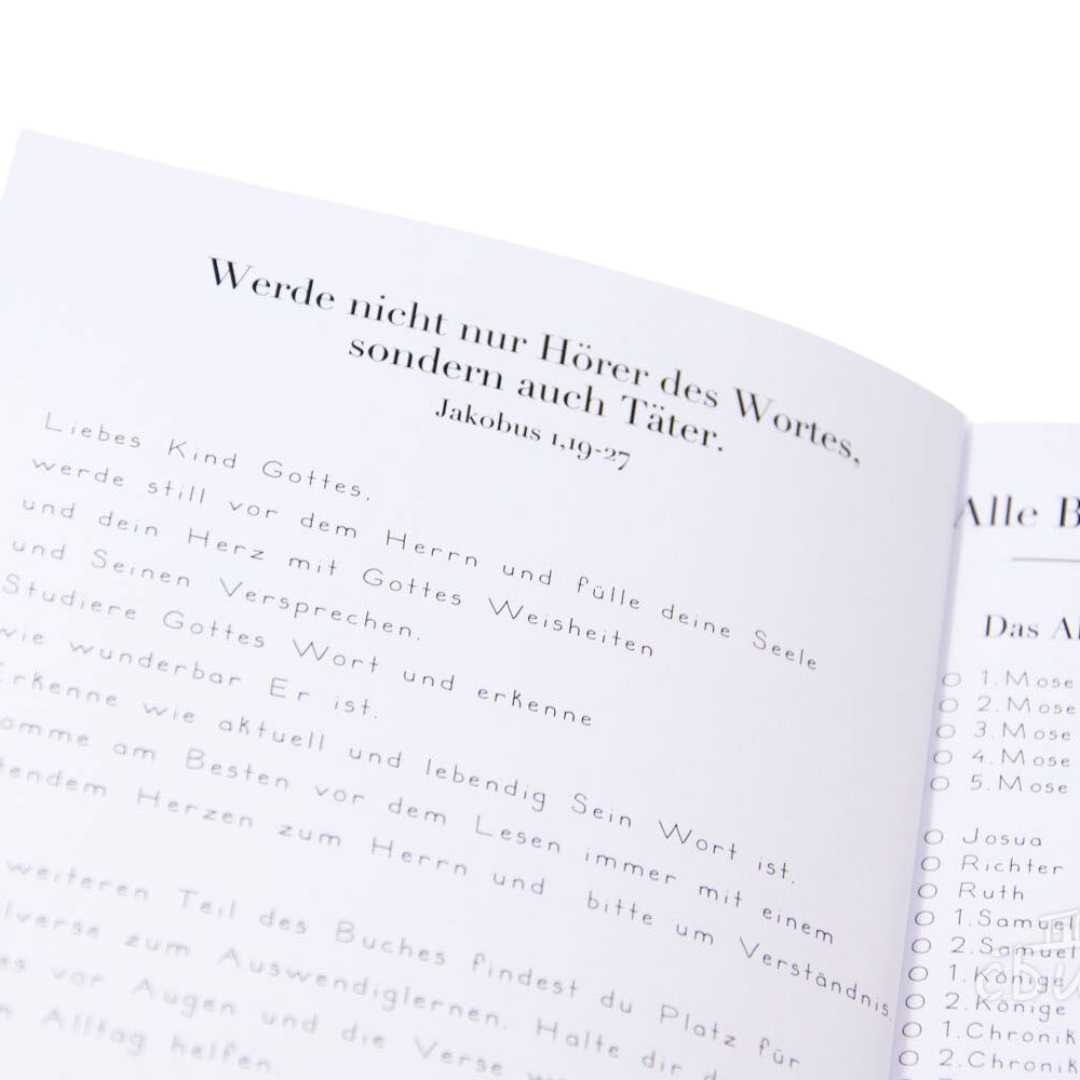 Werde nicht nur Hörer des Wortes,
sondern auch Täter.
Jakobus 1,19-27
Liebes Kind Gottes,
werde still vor dem Herrn und fülle deine Seele
und dein Herz mit Gottes Weisheiten
und Seinen Versprechen.
Studiere Gottes Wort und erkenne
wie wunderbar Er ist.
Erkenne wie aktuell und lebendig Sein Wort ist.
am Besten vor dem Lesen immer mit einem
Herzen zum Herrn und bitte um Verständnis.
weiteren Teil des Buches findest du Platz für
zum Auswendiglernen. Halte dir
vor Augen und die Verse
Alltag helfen.
Alle B
Das Al
1.Mose
2.Mose
3.Mose
4.Mose
5.Mose
Josua
Richter
Ruth
1.Samuel
2.Samuel
1.Könige
2.Könige
1.Chronik
2.Chronik